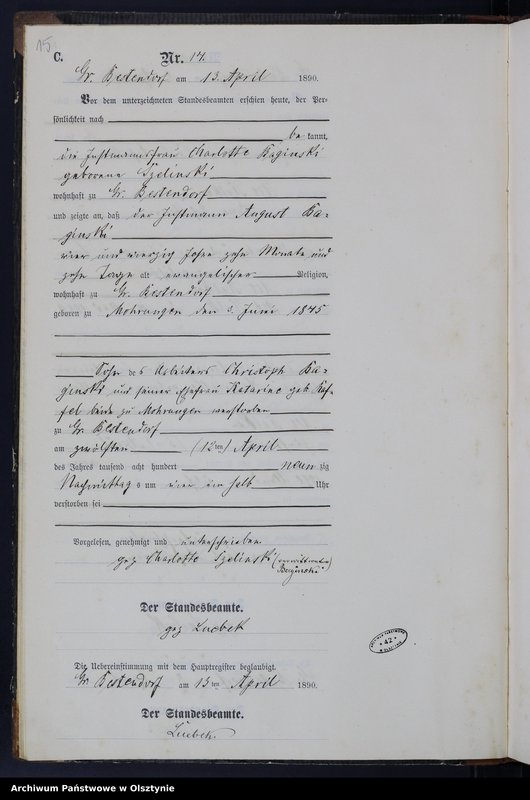 15
C.
Nr. 14.
Gr. Bestendorf am 13. April 1890.
Vor dem unterzeichneten Standesbeamten erschien heute, der Per-
sönlichkeit nach
be kannt,
die Instmannsfrau Charlotte Baginski
geborene Szelinski
wohnhaft zu Gr. Bestendorf
und zeigte an, daß der Instmann August Ba-
ginski
vier und vierzig Jahre zehn Monate und
zehn Tage alt evangelischer Religion,
wohnhaft zu Gr. Bestendorf
geboren zu Mohrungen den 3. Juni 1845
Sohn des Arbeiters Christoph Ba-
ginski und seiner Ehefrau Katarine geb.
beide zu Mohrungen verstorben
zu Gr. Bestendorf
am zwölften (12ten) April
des Jahres tausend acht hundert neun zig
Nachmittags um vier ein halb Uhr
verstorben sei
Vorgelesen, genehmigt und unterschrieben
gez Charlotte Szelinski (verwittwete
Baginski
Der Standesbeamte.
gez Luebek
Die Uebereinstimmung mit dem Hauptregister beglaubigt.
Gr. Bestendorf am 13ten April 1890.
Der Standesbeamte.
Luebek.
42
Archiwum Państwowe w Olsztynie